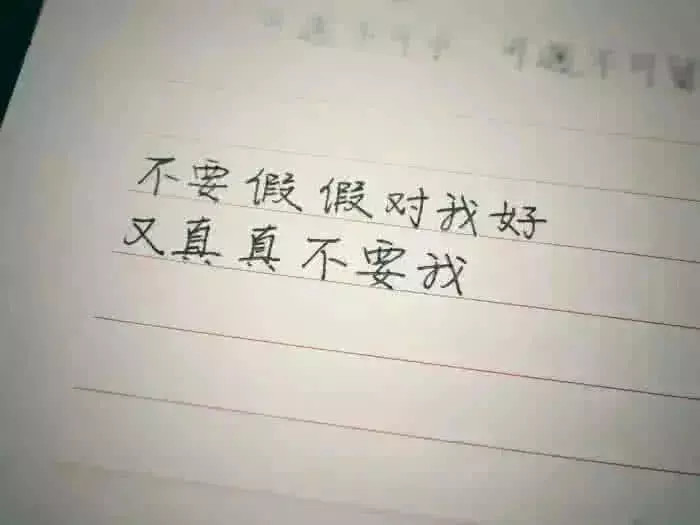 不要假假对我好
又真真不要我